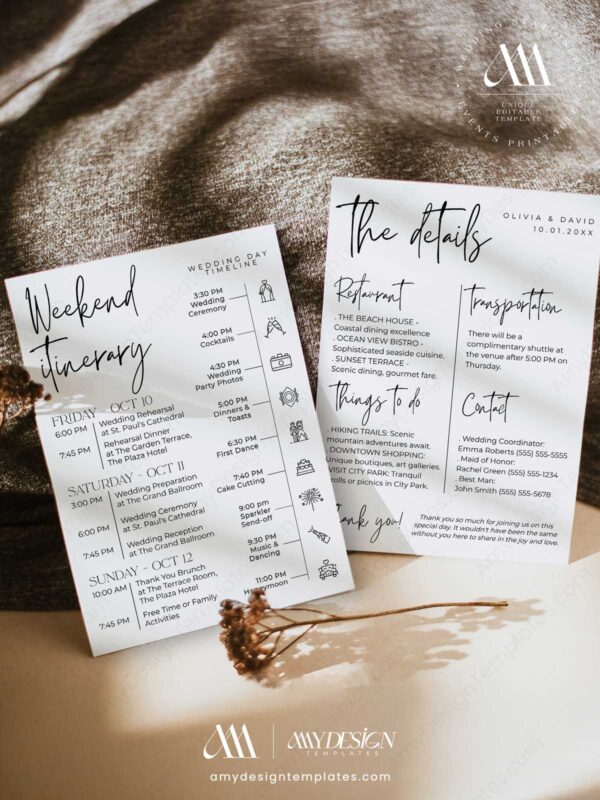 WEDDING STATIONERY
EVENTS PRINTABLES
AM
UNIQUE
EDITABLE
TEMPLATE
Weekend
itinerary
FRIDAY - OCT 10
6:00 PM
Wedding Rehearsal
at St. Paul's Cathedral
7:45 PM
Rehearsal Dinner
at The Garden Terrace,
The Plaza Hotel
SATURDAY - OCT 11
3:00 PM
Wedding Preparation
at The Grand Ballroom
6:00 PM
Wedding Ceremony
at St. Paul's Cathedral
7:45 PM
Wedding Reception
at The Grand Ballroom
SUNDAY - OCT 12
10:00 AM
Thank You Brunch
at The Terrace Room,
The Plaza Hotel
7:45 PM
Free Time or Family
Activities
WEDDING DAY
TIMELINE
3:30 PM
Wedding
Ceremony
4:00 PM
Cocktails
4:30 PM
Wedding
Party Photos
5:00 PM
Dinners &
Toasts
6:30 PM
First Dance
7:40 PM
Cake Cutting
9:00 pm
Sparkler
Send-off
9:30 PM
Music &
Dancing
11:00 PM
Honeymoon
The details
OLIVIA & DAVID
10.01.20XX
Restaurant
. THE BEACH HOUSE -
Coastal dining excellence
. OCEAN VIEW BISTRO -
Sophisticated seaside cuisine.
. SUNSET TERRACE -
Scenic dining, gourmet fare.
Things to do
. HIKING TRAILS: Scenic
mountain adventures await.
. DOWNTOWN SHOPPING:
Unique boutiques, art galleries.
VISIT CITY PARK: Tranquil
strolls or picnics in City Park.
Transportation
There will be a
complimentary shuttle at
the venue after 5:00 PM on
Thursday.
Contact
. Wedding Coordinator:
Emma Roberts (555) 555-5555
. Maid of Honor:
Rachel Green (555) 555-1234
. Best Man:
John Smith (555) 555-5678
Thank you!
Thank you so much for joining us on this
special day. It wouldn't have been the same
without you here to share in the joy and love.
AM
AMYDESIGN
TEMPLATES
amydesigntemplates.com